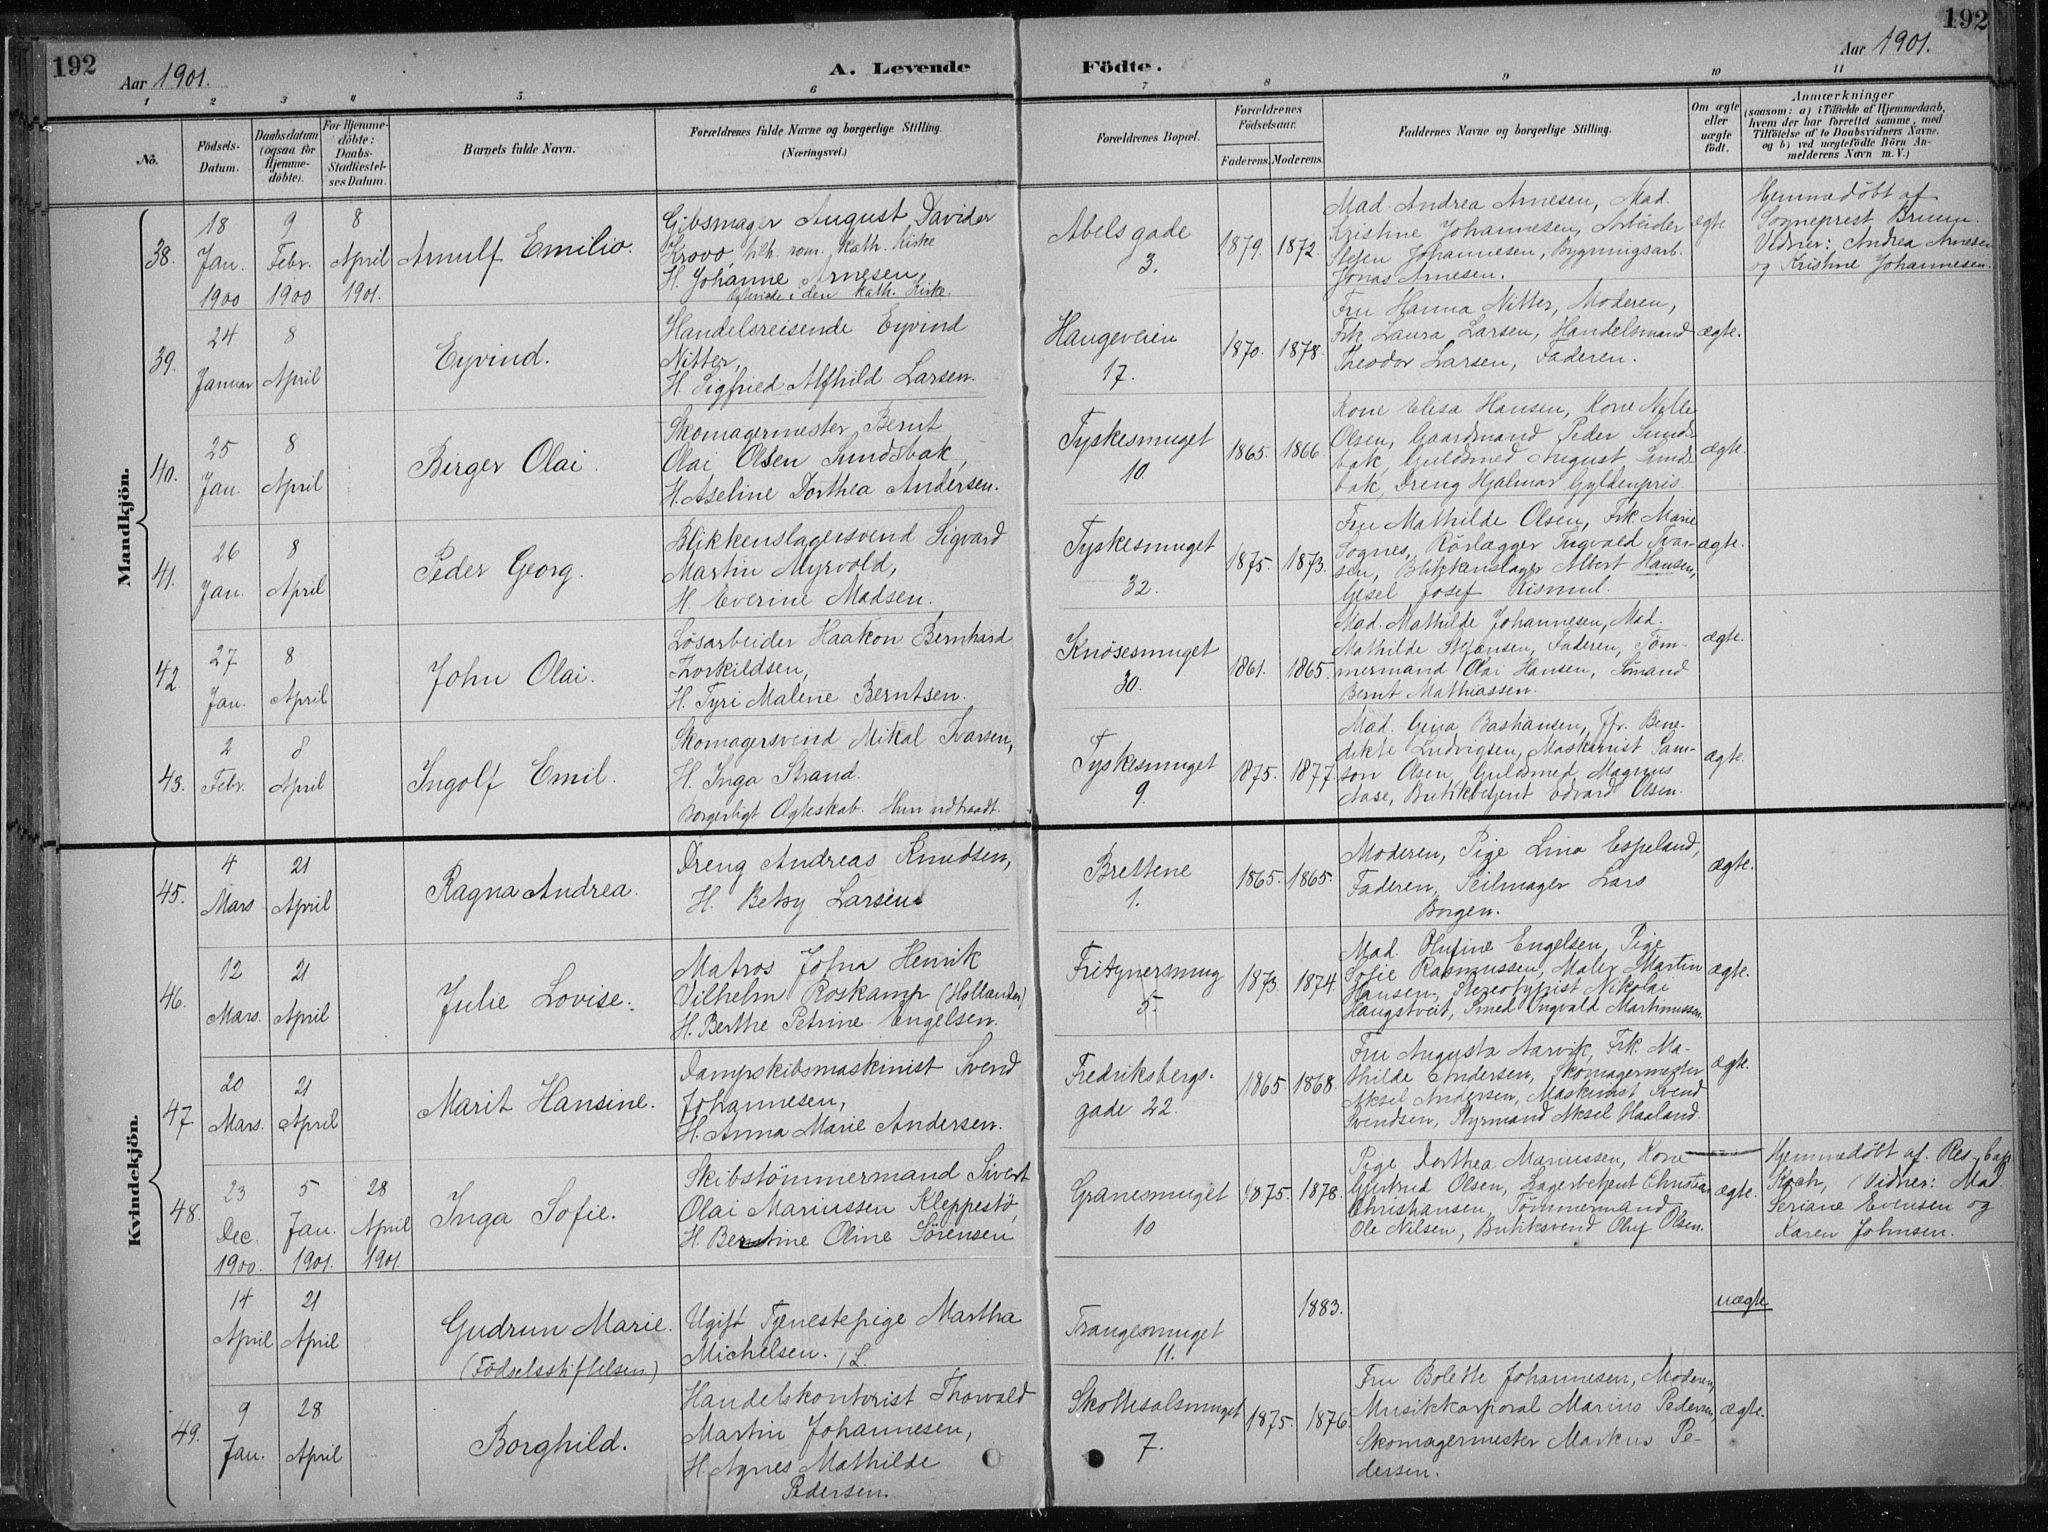 192
192
Aar 1901.
A. Levende
Födte.
Aar 1901.
1
2
3
4
5
6
7
8
9
10
11
No.
Födsels-
Datum.
Daabsdatum
(ogsaa for
Hjemme-
döbte).
For Hjemme-
döbte:
Daabs-
Stadfæstel-
ses Datum.
Barnets fulde Navn.
Forældrenes fulde Navne og borgerlige Stilling.
(Næringsvei.)
Forældrenes Bopæl.
Forældrenes
Födselsaar.
Faderens.
Moderens.
Faddernes Navne og borgerlige Stilling.
Om ægte
eller
uægte
födt.
Anmærkninger
(saasom: a) i Tilfælde af Hjemmedaab,
hvem der har forrettet samme, med
Tilföielse af to Daabsvidners Navne.
og b) ved uægtefödte Börn An-
melderens Navn m. V.)
Mandkjön.
38.
18
Jan.
1900
9
Febr.
1900
8
April
1901.
Arnulf Emilio.
Gibsmager August Davider
H. Johanne Arnesen
Abelsgade
3.
1879.
1872.
Mad. Andrea Arnesen, Mad.
Kristine Johannesen, Arbeider
Stefen Johannesen, Bygningsarb.
Jonas Arnesen.
ægte
Hjemmedøbt af
Sogneprest Bruun.
Vidner: Andrea Arnesen
og Kristine Johannesen.
39.
24
Januar
8
April
Eyvind.
Handelsreisende Eyvind
Nitter,
H. Sigfried Alfhild Larsen.
Haugeveien
17.
1870.
1878.
Fru Hanna Nitter, Moderen,
Frk. Laura Larsen, Handelsmand
Theodor Larsen, Faderen.
ægte.
40.
25
Jan.
8
April
Birger Olai.
Skomagermester Bernt
Olai Olsen Sundsbak,
H. Aseline Dorthea Andersen.
Tyskesmuget
10.
1865.
1866.
Kone Elisa Hansen, Kone
Olsen, Gaardmand Peder Sunds-
bak, Guldsmed August Sunds-
bak, Dreng Hjalmar Gyldenpris.
ægte.
41.
26
Jan.
8
April
Peder Georg.
Blikkenslagersvend Sigvard
Martin Myrvold,
H. Everine Madsen.
Tyskesmuget
32.
1875.
1873.
Fru Mathilde Olsen, Frk. Marie
Sognes, Rörlægger Ingvald Ivar-
sen, Blikkenslager Albert Hansen,
Josef
ægte.
42.
27
Jan.
8
April
John Olai.
Løsarbeider Haakon Bernhard
Torkildsen,
H. Tyri Malene Berntsen.
Knösesmuget
30.
1861.
1865.
Mad. Mathilde Johannesen, Mad.
Mathilde Stefansen, Faderen, Töm-
mermand Olai Hansen, Sömand
Bernt Mathiassen.
ægte.
43.
2
Febr.
8
April
Ingolf Emil.
Skomagersvend Mikal Ivarsen,
H. Inga Strand.
Borgerligt Ægteskab. Hun udtraadt.
Tyskesmuget
9.
1875.
1877.
Mad. Gina Bastiansen, Jfr. Bene-
dikte Ludvigsen, Maskinist Sam-
son Olsen, Guldsmed Magnus
Aase, Butikbetjent Edvard Olsen.
ægte.
Kvindekjön.
45.
4
Mars
21
April
Ragna Andrea.
Dreng Andreas Knudsen,
H. Betsy Larsen
Brettene
1.
1865.
1865.
Moderen, Pige Lina Espeland,
Faderen, Seilmager Lars
Borgen.
ægte.
46.
12
Mars.
21
April
Julie Lovise.
Matros Johna Henrik
Vilhelm Roskamp (Hollander)
H. Berthe Petrine Engelsen.
5.
1873.
1874.
Mad. Olufine Engelsen, Pige
Sofie Rasmussen, Maler Martin
Hansen, Stereotypist Nikolai
Haugstveit, Smed Ingvald Martinussen.
ægte.
47
20
Mars.
21
April
Marit Hansine.
Dampskibsmaskinist Svend
Johannesen,
H. Anna Marie Andersen.
Fredriksbergs-
gade 22.
1865
1868.
Fru Augusta Aarvik, Frk. Ma-
thilde Andersen, Skomagermester
Aksel Andersen, Maskinist Svend
Svendsen, Styrmand Aksel Haaland.
ægte.
48.
23
Dec.
1900.
5
Jan.
1901.
28
April
1901.
Inga Sofie.
Skibstömmermand Sivert
Olai Mariussen Kleppestö,
H. Oline Sörensen
Granesmuget
10
1875.
1878.
Pige Dorthea Mariussen, Kone
Gjertrud Olsen, Lagerbetjent Christian
Christiansen, Tömmermand
Ole Nilsen, Butiksvend Oluf Olsen.
ægte.
Hjemmedöbt af Res. Cap.
Vidner: Mad.
Seriane Evensen og
Karen Johnsen.
14
April
21
April
Gudrun Marie.
(Födselsstiftelsen)
Ugift Tjenestepige Martha
Michelsen. 1 L.
Trangesmuget
11.
1883.
uægte
49.
9
Jan.
28
April
Borghild.
Handelskontorist Thorvald
Martin Johannesen,
H. Agnes Mathilde
Pedersen.
Skottesalsmuget
7.
1875.
1876.
Fru Bolette Johannesen, Moderen,
Musikkorporal Marius Pedersen,
Skomagermester Markus Pe-
dersen.
ægte.